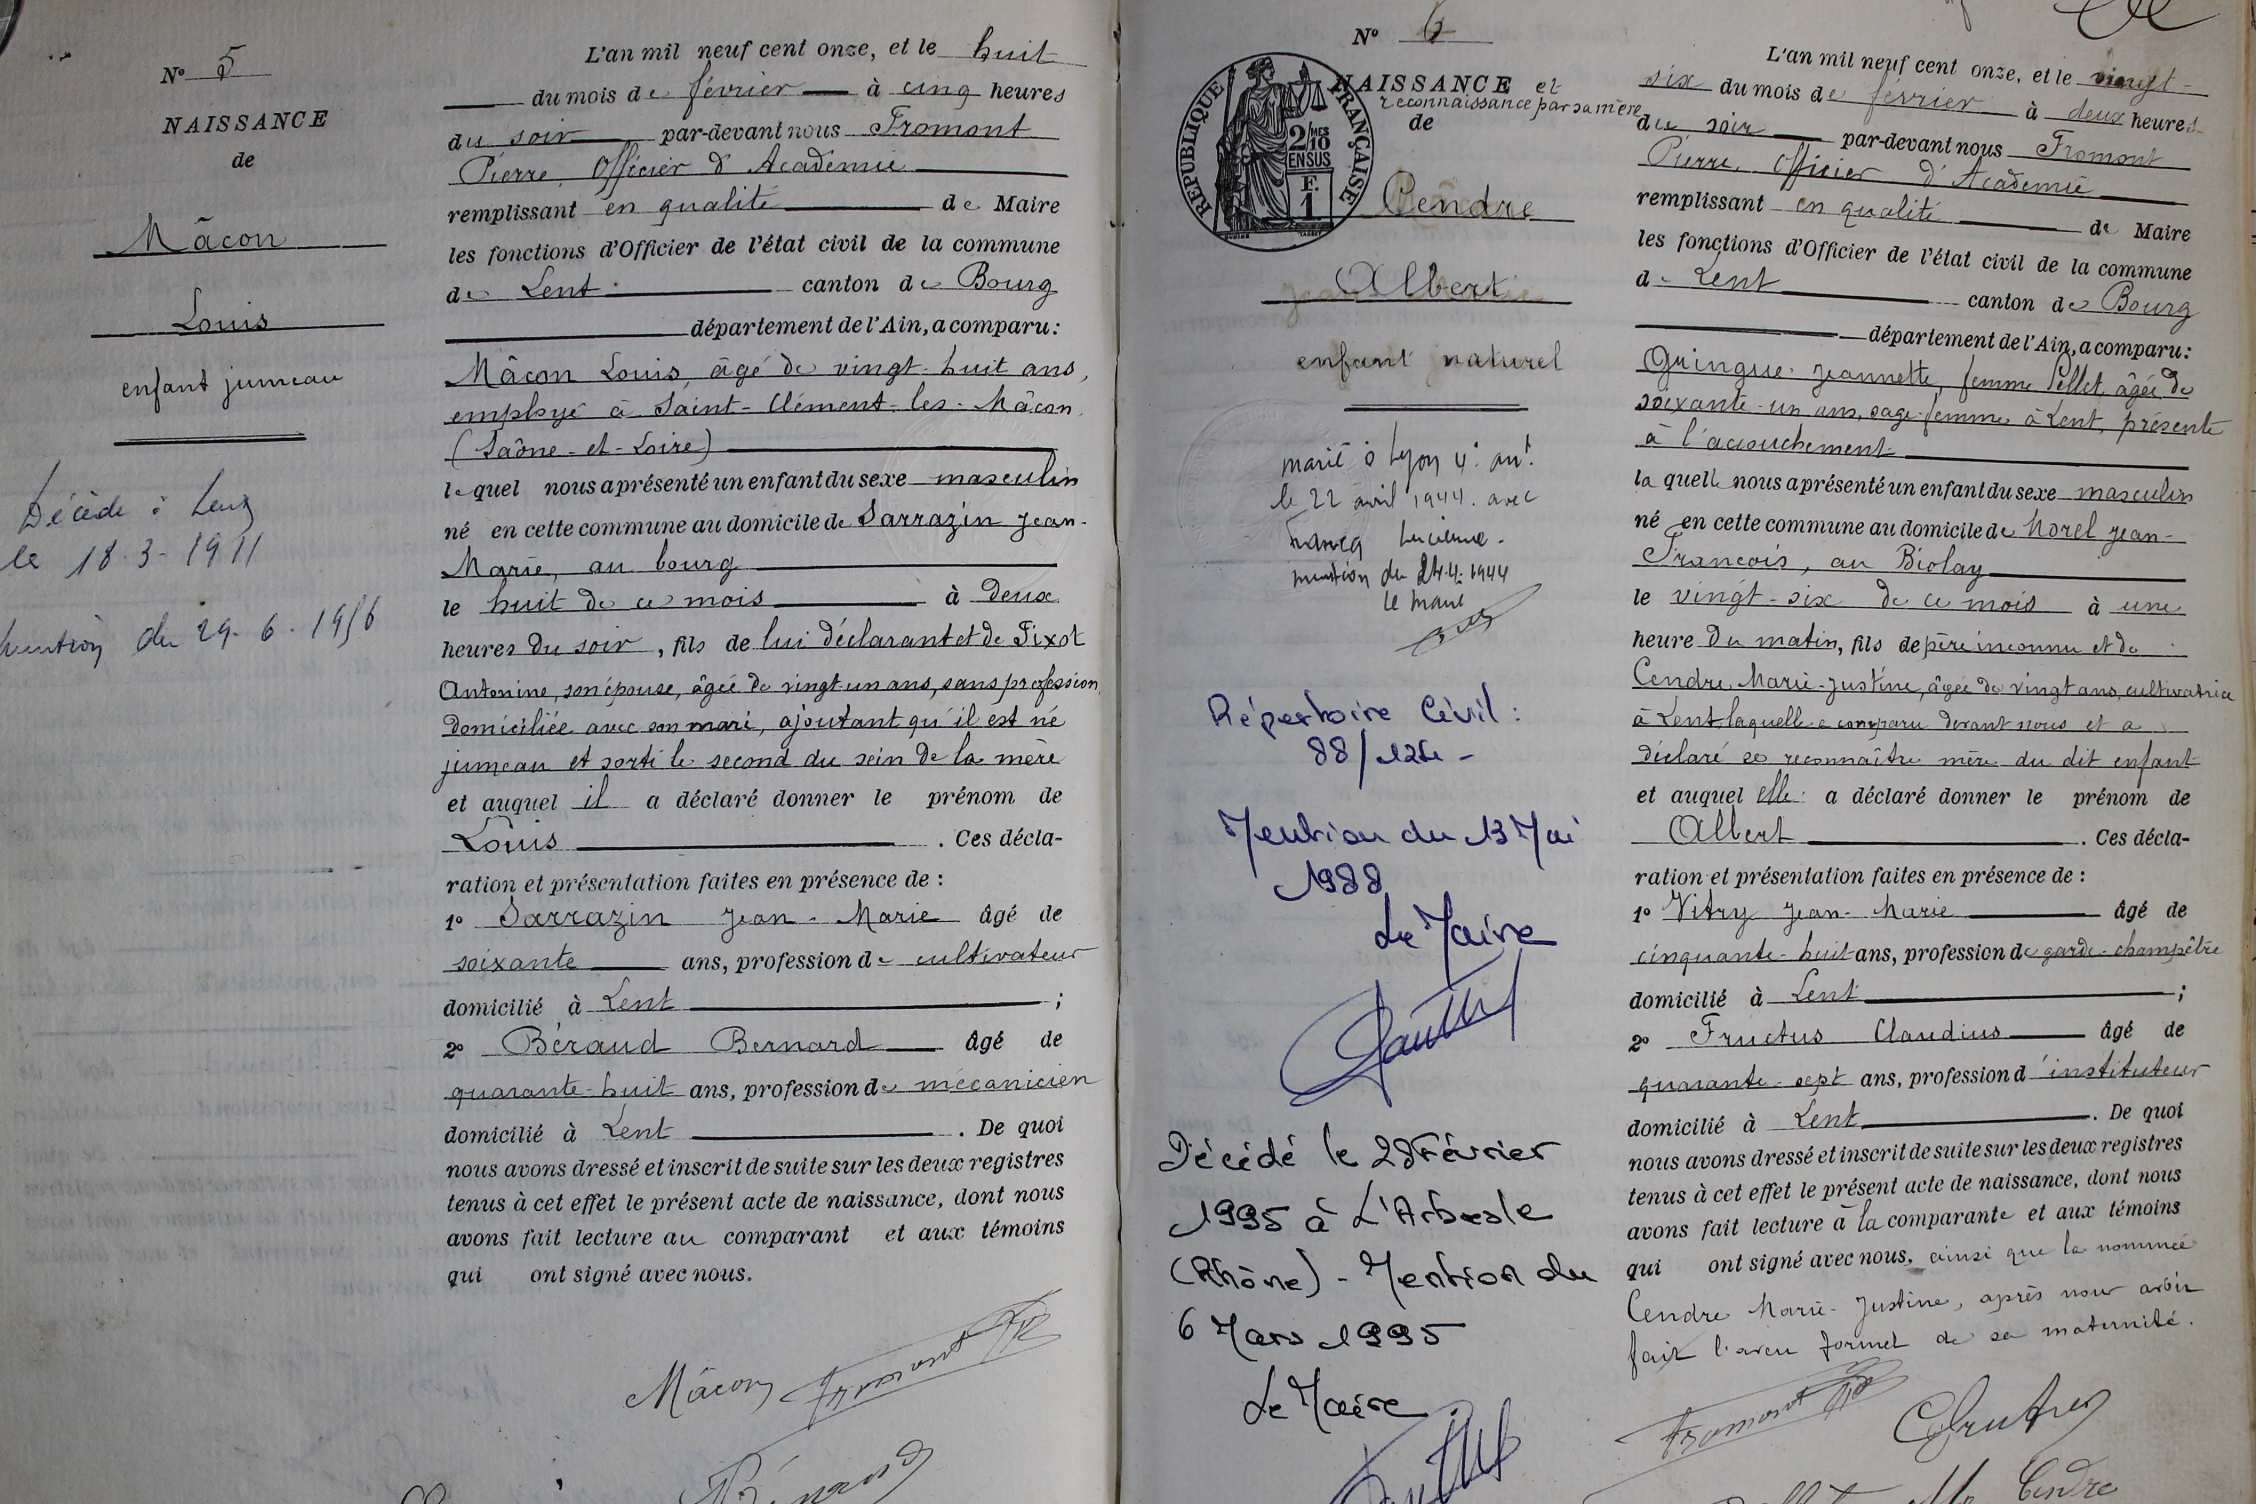 N° 5
NAISSANCE
de
Mâcon
Louis
enfant jumeau
Décédé à
le 18-3-1911
mention du 29-6-1956
L'an mil neuf cent onze, et le huit
du mois de février à cinq heures
du soir par-devant nous Fromont
Pierre, Officier d'Académie
remplissant en qualité de Maire
les fonctions d'Officier de l'état civil de la commune
de Lent canton de Bourg
département de l'Ain, a comparu:
Mâcon Louis, âgé de vingt-huit ans,
employé à Saint-Clément-les-Mâcon,
(Saône-et-Loire)
lequel nous a présenté un enfant du sexe masculin
né en cette commune au domicile de Sarrazin Jean-
Marie, au bourg
le huit de ce mois à deux
heures du soir, fils de lui déclarant et de Tixot
Antonine, son épouse, âgée de vingt-un ans, sans profession,
domiciliée avec son mari, ajoutant qu'il est né
jumeau et sorti le second du sein de la mère
et auquel il a déclaré donner le prénom de
Louis. Ces décla-
ration et présentation faites en présence de:
1° Sarrazin Jean-Marie âgé de
soixante ans, profession de cultivateur
domicilié à Lent;
2° Béraud Bernard âgé de
quarante-huit ans, profession de mécanicien
domicilié à Lent. De quoi
nous avons dressé et inscrit de suite sur les deux registres
tenus à cet effet le présent acte de naissance, dont nous
avons fait lecture au comparant et aux témoins
qui ont signé avec nous.
Mâcon Fromont
Béraud
N° 6
NAISSANCE et
reconnaissance par sa mère
de
RÉPUBLIQUE FRANÇAISE
2/10
MES
EN SUS
F.
1
Cendre
Albert
enfant naturel
marié à Lyon 4e arrt
le 22 avril 1944 avec
Lucienne.
mention du 24-4-1944
le maire
Répertoire Civil:
Mention du 13 Mai
1988
Le Maire
Décédé le 28 Février
1995 à L'Arbresle
(Rhône) - Mention du
6 Mars 1995
Le Maire
L'an mil neuf cent onze, et le vingt-
six du mois de février à deux heures
du soir par-devant nous Fromont
Pierre, Officier d'Académie
remplissant en qualité de Maire
les fonctions d'Officier de l'état civil de la commune
de Lent canton de Bourg
département de l'Ain, a comparu:
Gringue Jeannette, femme Pellet, âgée de
soixante-un ans, sage-femme à Lent, présente
à l'accouchement
laquelle nous a présenté un enfant du sexe masculin
né en cette commune au domicile de Morel Jean-
François, au Biolay
le vingt-six de ce mois à une
heure du matin, fils de père inconnu et de
Cendre Marie-Justine, âgée de vingt ans, cultivatrice
à Lent, laquelle a comparu devant nous et a
déclaré se reconnaître mère du dit enfant
et auquel elle a déclaré donner le prénom de
Albert. Ces décla-
ration et présentation faites en présence de:
1° Vitry Jean-Marie âgé de
cinquante-huit ans, profession de garde-champêtre
domicilié à Lent;
2° Fructus Claudius âgé de
quarante-sept ans, profession d'instituteur
domicilié à Lent. De quoi
nous avons dressé et inscrit de suite sur les deux registres
tenus à cet effet le présent acte de naissance, dont nous
avons fait lecture à la comparante et aux témoins
qui ont signé avec nous, ainsi que la nommée
Cendre Marie-Justine, après nous avoir
fait l'aveu formel de sa maternité.
Fromont Cl Fructus
Cendre